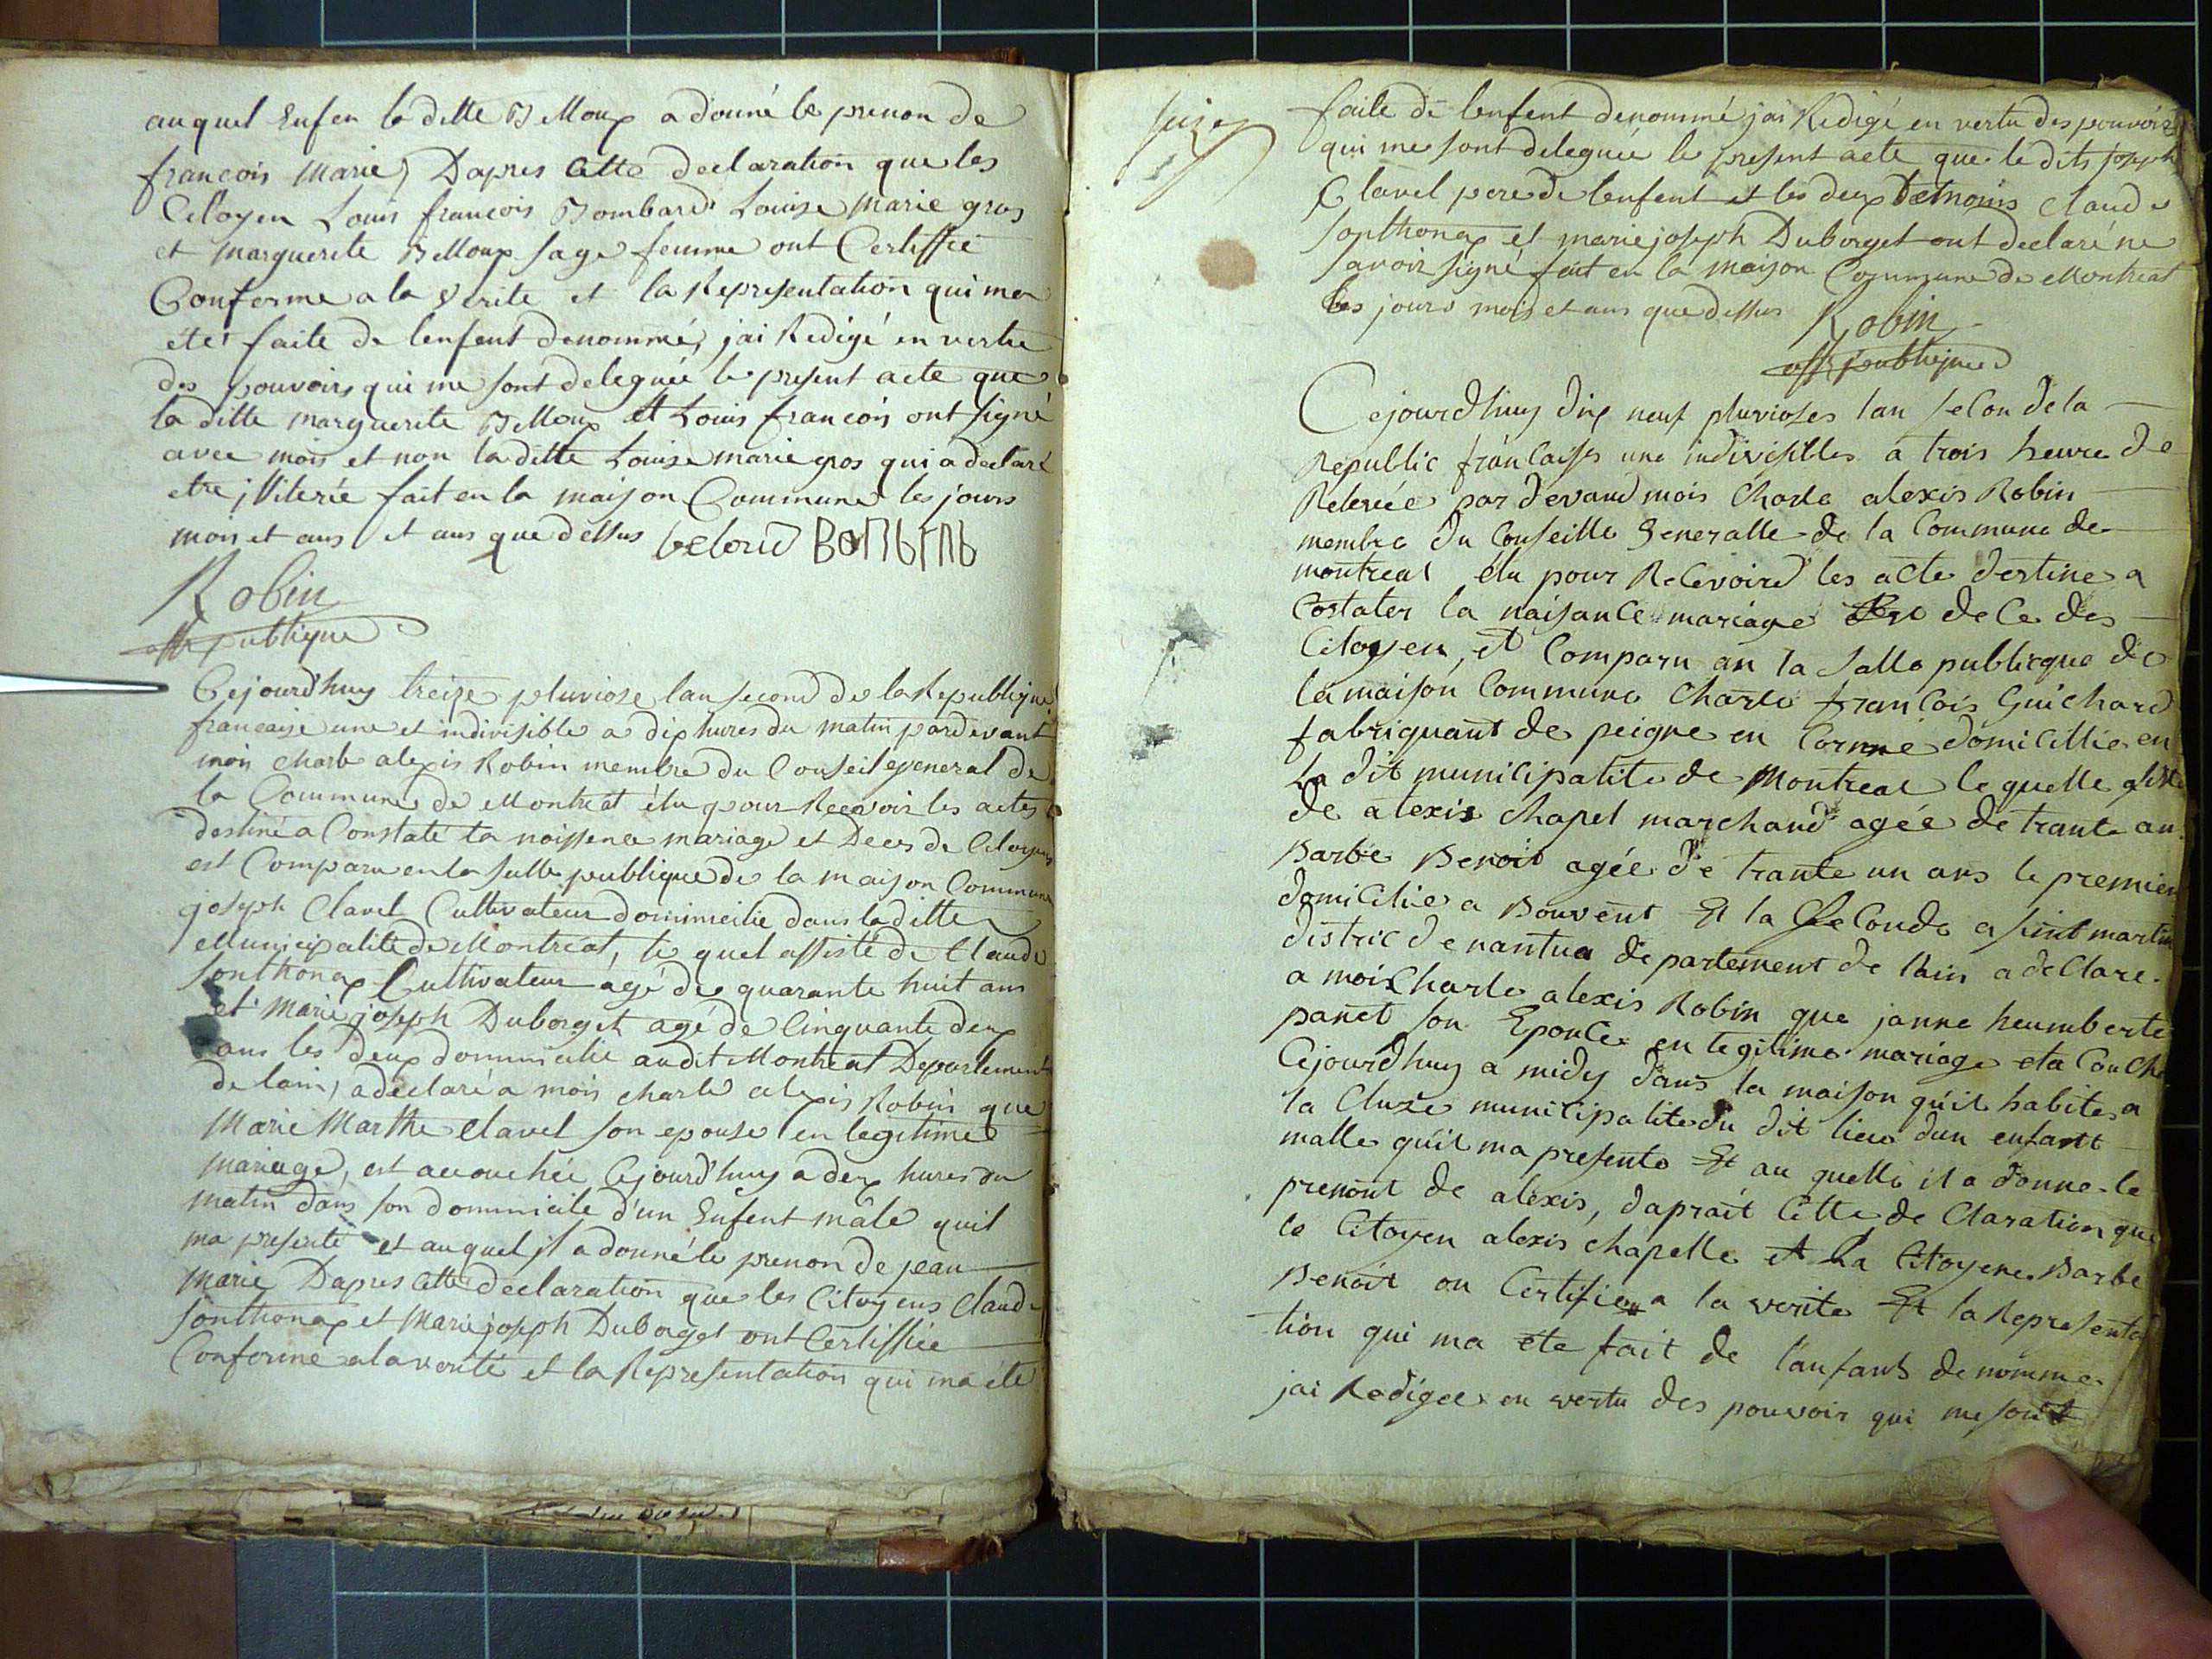 auquel Enfen la ditte Belloux a donné le prenon de
françois Marie, Dapres Cette declaration que les
Citoyen Louis françois Bombard Louise Marie gros
et Marguerite Belloux sage femme ont Certiffié
Conforme a la verite et la Representation qui ma
été faite de lenfent denommé, jai Redigé en vertu
des pouvoirs qui me sont deleguée le present acte que
la ditte marguerite Belloux et Louis francois ont signé
avec mois et non la ditte Louise marie gros qui a declaré
etre jlliterée fait en la maison Commune les jours
mois et ans et ans que dessus
Robin
off publique
Cejourd'huy treize pluviose lan second de la Republique
francaise une et indivisible a dix hures du matin pardevant
mois charle alexis Robin membre du Conseil general de
la Commune de Montreal élu pour Recevoir les actes
destiné a Constaté la naissence mariage et Deces de Citoyens
est Comparu en la salle publique de la maison Commune
joseph Clavel Cultivateur dominicilie dans la ditte
Municipalité de Montréal, le quel assisté de Claude
sonthonax Cultivateur agé de quarante huit ans
et Marie joseph Duborget agé de Cinquante deux
ans les deux dominicilie audit Montréal Departement
de lain, a declaré a mois charle alexis Robin que
Marie Marthe Clavel son epouse en legitime
mariage, est accouchée Cejourd'huy a deux hures du
matin dans son dominicile d'un Enfent mâle quil
ma presenté et auquel jl a donné le prenon de jean
Marie Dapres Cette déclaration que les Citoyens Claude
sonthonax et Marie joseph Duborget ont Certiffiée
Conforme a la verité et la Representation qui ma été
seize
faite de lenfent denommé jai Redigé en vertu des pouvoirs
qui me sont deleguée le present acte que le dits joseph
Clavel pere de lenfent et les deux Temoins Claude
sonthonax et marie joseph Duborget ont declaré ne
savoir signé fait en la maison Commune de Montréal
les jours mois et ans que dessus
Robin
off publique
Cejourdhuy dix neuf pluvioses lan selon de la
Republic françaises une indivisilles a trois heure de
Relevée par devand mois Charle alexis Robin
membre du Conseille Generalle de la Commune de
montreal élu pour Relevoire les acte destine a
Costater la naisance mariage de Ce des
Citoyen, et Comparu an la salle publicque de
la maison Commune Charle françois Guichard
fabriquant de peigne en Corne domicillie en
La dit municipalite de Montreal le quelle
de alexis Chapel marchand agée de trante an
Barbe Benoit agée de trante un ans le premier
domicilie a Bouvent Et la seConde a sint martin
distric de nantua departement de lain a deClare
a mois Charle alexis Robin que janne heumberte
panet son Epouce en legitime mariage eta Couche
Cejourdhuy a midy dans la maison qu'il habite a
la Cluze municipalite du dit lieu dun enfant
malle quil ma presente Et au quelle il a donne le
prenont de alexis, daprait Cette de Claration que
le Citoyen alexis chapelle et La Citoyene Barbe
Benoit on Certifie a la verite Et la Representa
tion qui ma ete fait de lanfant denomme
jai Redigee en vertu des pouvoir qui me sont